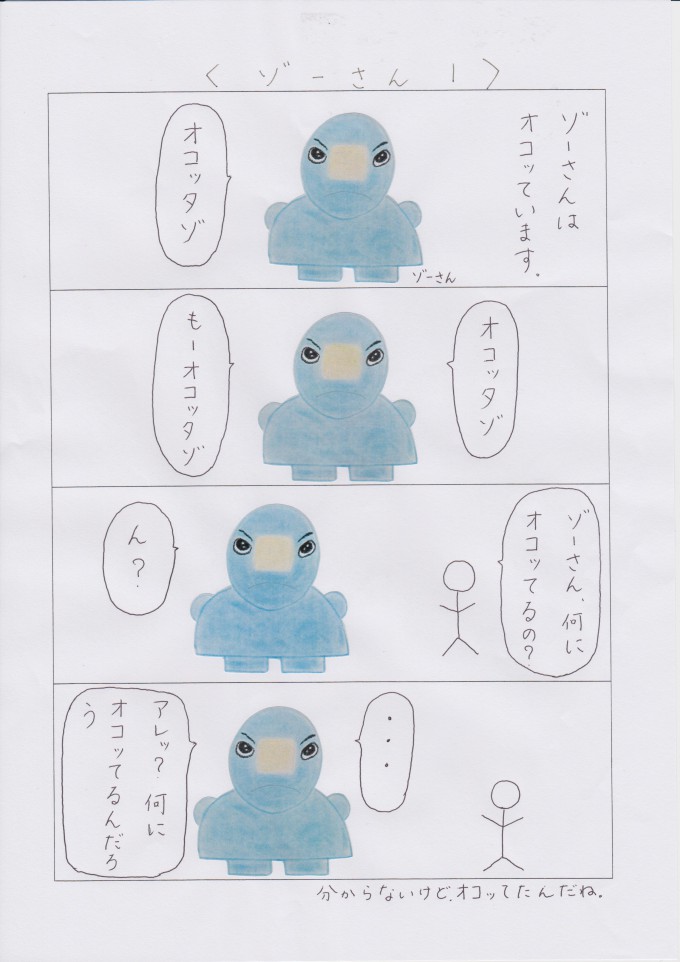 〈 ゾーさん 1 〉
ゾーさんは
オコッています.
オコッタゾ
ゾーさん
オコッタゾ
もーオコッタゾ
ゾーさん、何に
オコッてるの?
ん?
・・・
アレッ? 何に
オコッてるんだろ
う
分からないけど、オコッてたんだね.